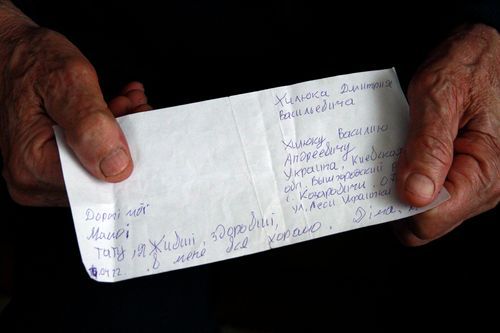 Хилюка Дмитрия
Васильевича
Хилюку Василию
Андреевичу
Украина, Киевская
обл. Вышгородский
с. Козаровичи
ул. Леси Украинки
Дорогі мої
Мамо і
тату, я живий, здоровий,
в мене все хорошо. Діма.
04.22